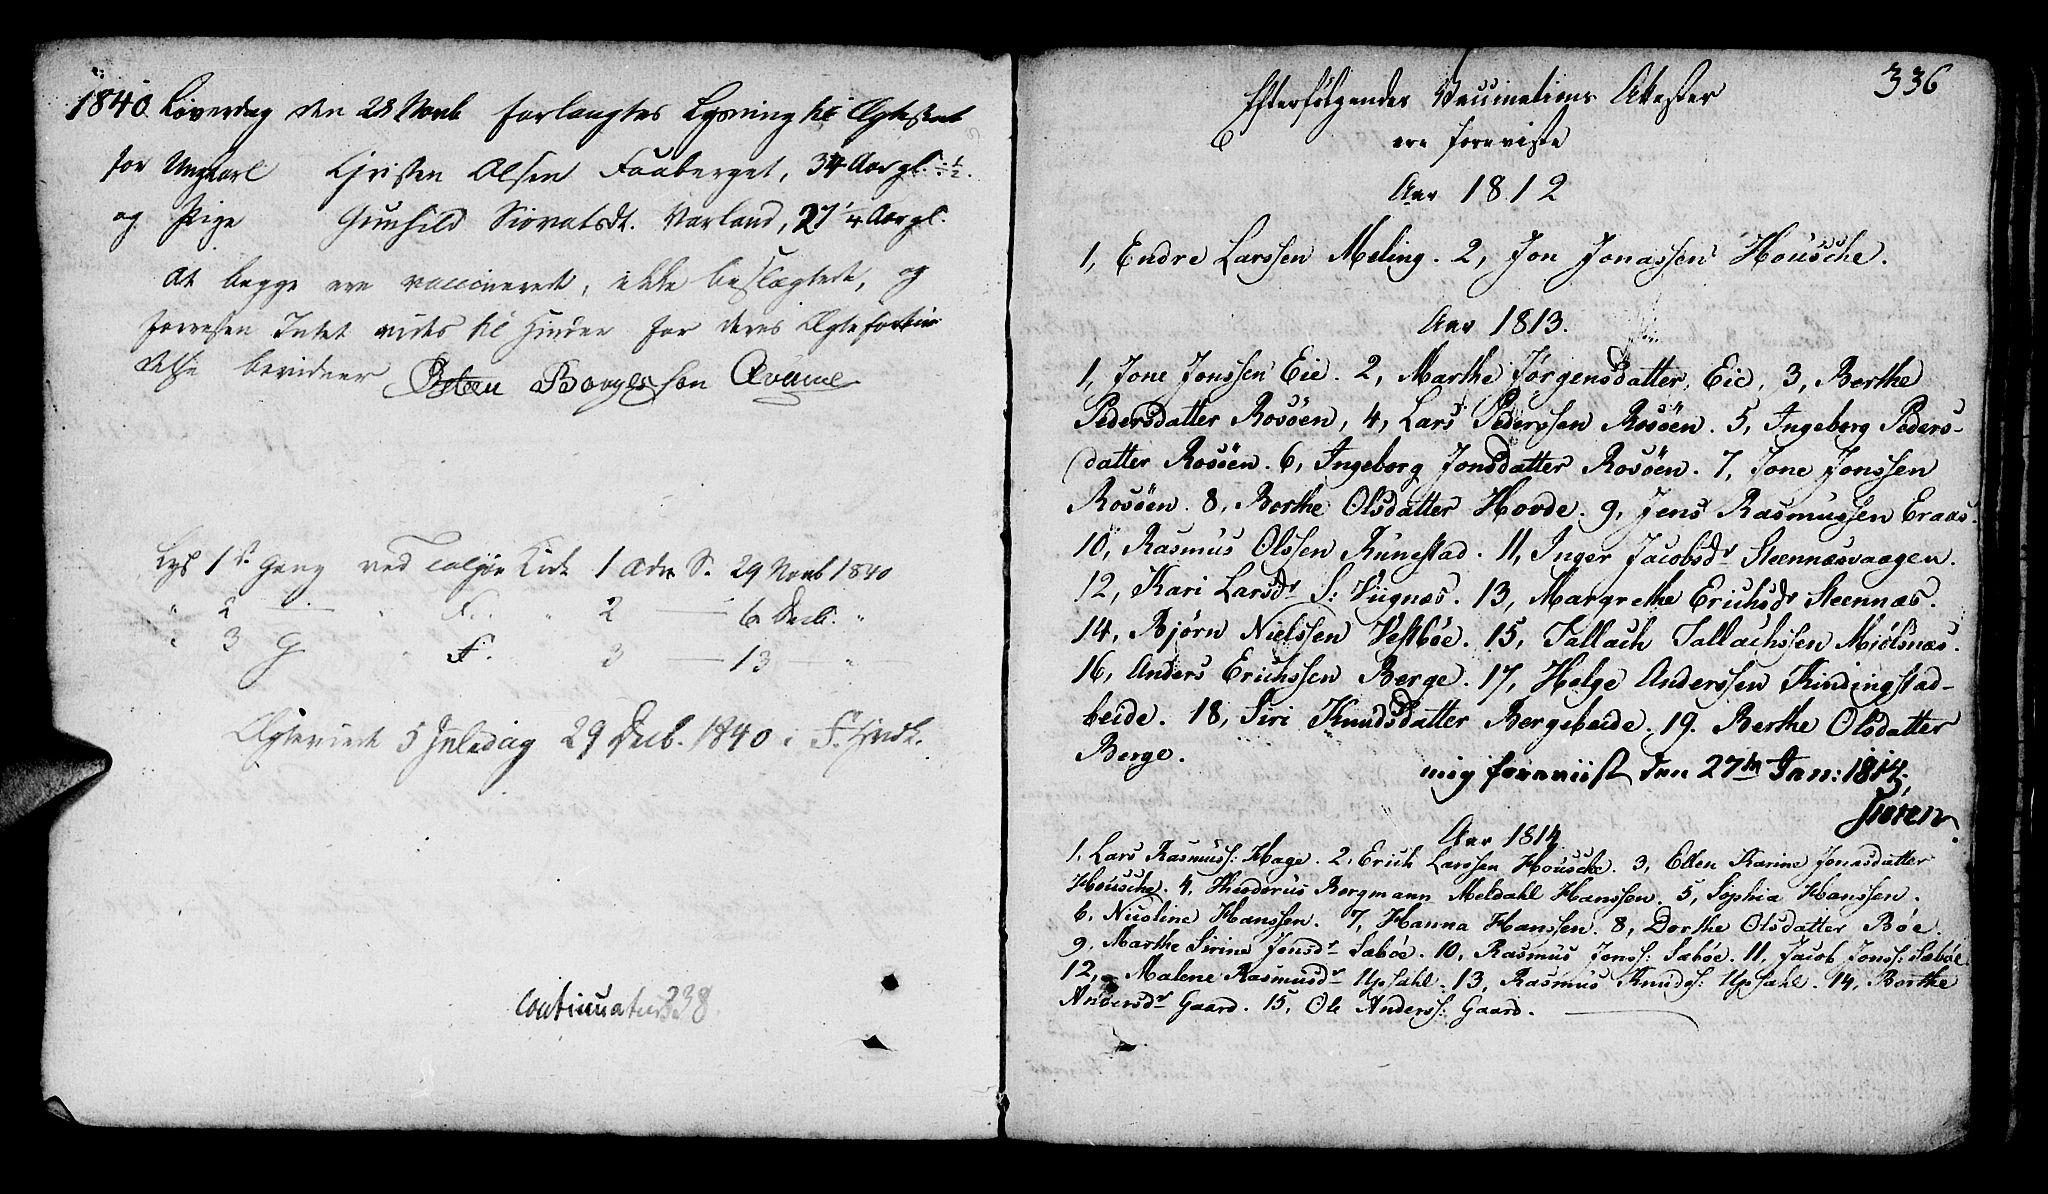 1840 Löverdag den 28 Novb forlangtes Lysning til Ægteskab
for Ungkarl Christen Olsen Faaberget, 34 Aar gl. ÷ ½.
og Pige Gunhild Siovatsdt. Varland, 27 ¼ Aar gl.
At begge ere vaccineret, ikke beslægtede, og
forresten Intet vides til Hinder for deres Ægteforbin
delse bevidner Østen Baarsson Qvame
Lys 1st Gang ved Talgøe Kirke 1 Adv. S. 29 Novb 1840
" 2 — " F. " 2 — 6 Decb. "
" 3 G " F. 3 — 13 — "
Ægteviede 5 Juledag 29 Decb. 1840 i F. Hvdk.
Continuatur 338.
336
Efterfølgende Vaccinations Attester
ere foreviste
Aar 1812
1, Endre Larssen Meling. 2, Jon Jonassen Housche.
Aar 1813.
1, Jone Jonssen Eie. 2, Marthe Jørgensdatter Eie, 3, Berthe
Pedersdatter Rosöen, 4, Lars Pederssen Rosöen. 5, Ingeborg Peders-
datter Rosöen. 6, Ingeborg Jonsdatter Rosöen. 7, Jone Jonssen
Rosöen. 8, Berthe Olsdatter Hovde. 9, Jens Rasmussen Eraas.
10, Rasmus Olssen Runestad. 11, Inger Jacobsdr Steennæsvaagen.
12, Kari Larsdr S: Viignæs. 13, Margrethe Erichsdr Steennæs.
14, Bjørn Nielssen Vestbøe. 15, Tallach Tallachssen Miølsnæs.
16, Anders Erichssen Berge. 17, Helge Anderssen Kindingstad-
beide. 18, Siri Knudsdatter Bergebeide. 19. Berthe Olsdatter
Berge.
mig foreviist den 27th Jan: 1814.
Søren
Aar 1814.
1, Lars Rasmuss: Hage. 2, Erich Larssen Housche. 3, Ellen Karine Jonasdatter
Housche. 4, Theodorus Bergmann Meldahl Hanssen. 5, Sophia Hanssen.
6, Nicoline Hanssen. 7, Hanna Hanssen. 8, Dorthe Olsdatter Bøe.
9, Marthe Sirine Jonsdr Sæbøe. 10, Rasmus Jonss: Sæbøe. 11, Jacob Jonss: Sæbøe.
12, Malene Rasmusdr Upsahl. 13, Rasmus Knuds: Upsahl. 14, Berthe
Andersdr Gaard. 15, Ole Anderss: Gaard.